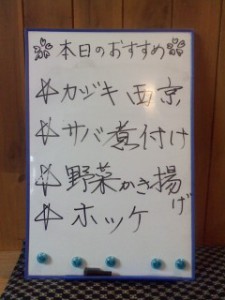 本日のおすすめ
☆カジキ西京
☆サバ煮付け
☆野菜かき揚げ
☆ホッケ